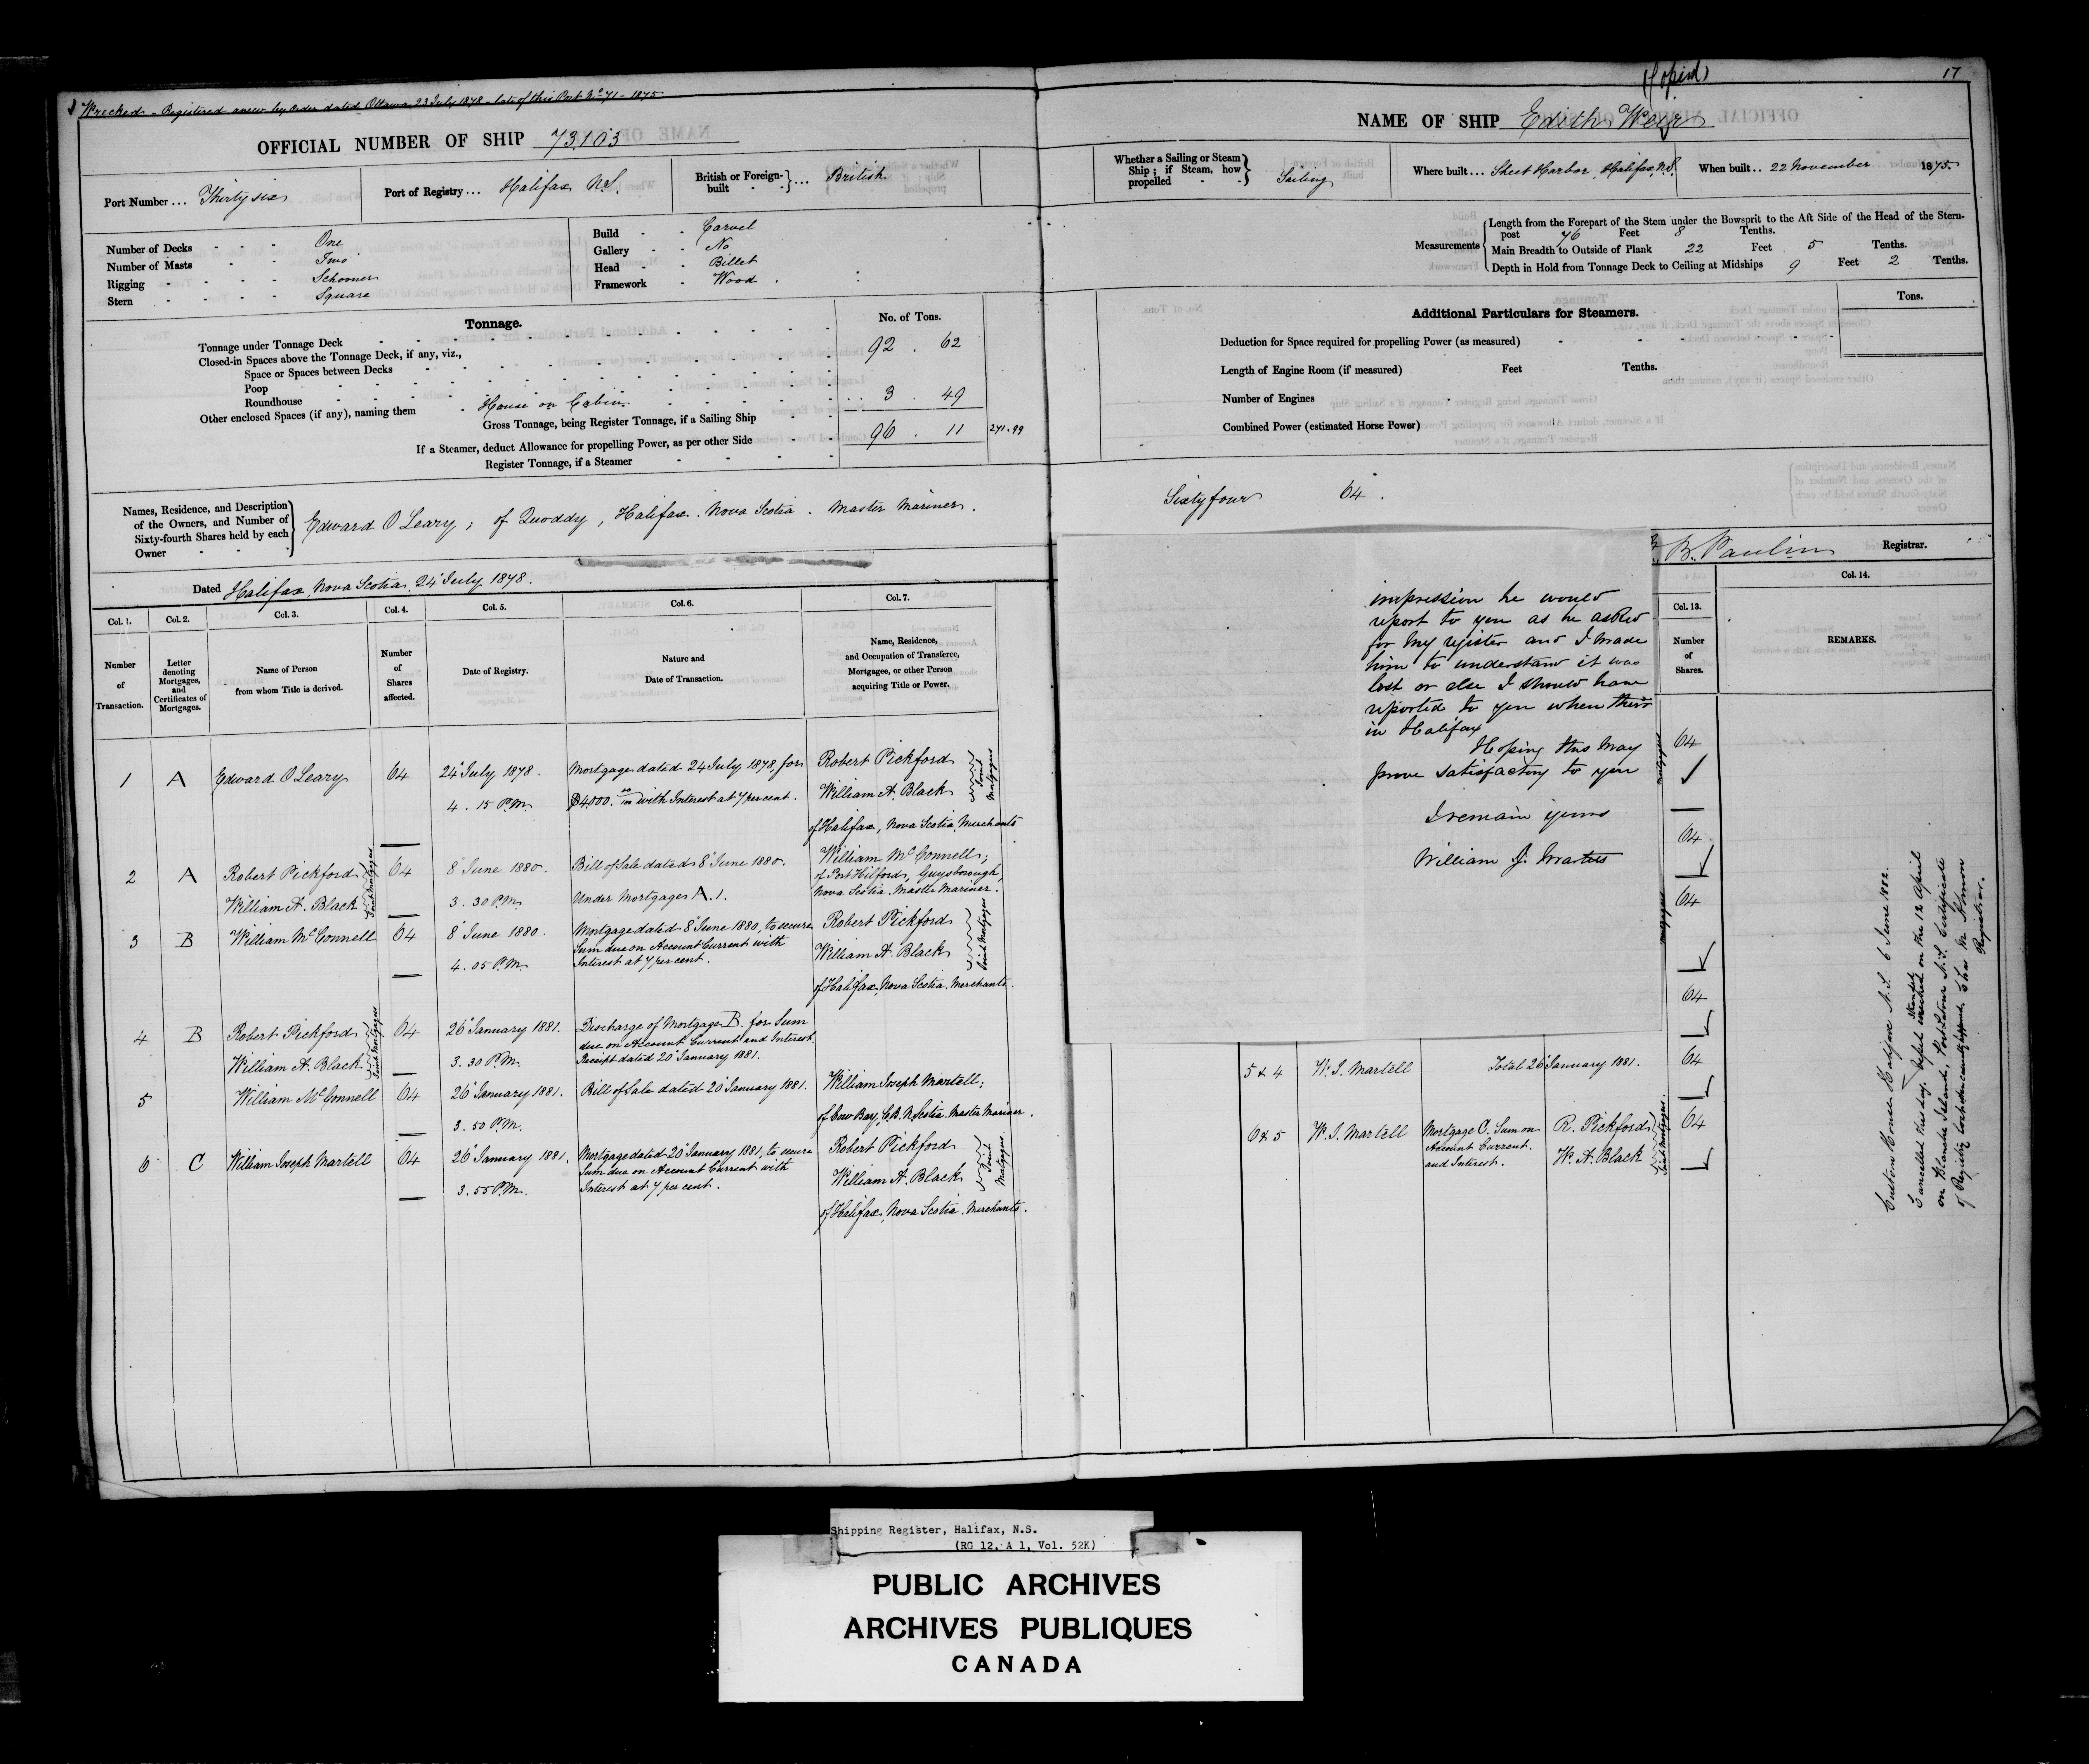 Wrecked. Registered anew by Order dated Ottawa 23 July 1878 - late of this Port No 71 - 1875
OFFICIAL NUMBER OF SHIP 73.103
Port Number ... Thirty six
Port of Registry ... Halifax N.S.
British or Foreign-built ... British
Number of Decks One
Number of Masts Two
Rigging Schooner
Stern Square
Build Carvel
Gallery No
Head Billet
Framework Wood
Tonnage.
No. of Tons.
Tonnage under Tonnage Deck 92 . 62
Closed-in Spaces above the Tonnage Deck, if any, viz.,
Space or Spaces between Decks
Poop
Roundhouse
Other enclosed Spaces (if any), naming them House on Cabin 3 . 49
Gross Tonnage, being Register Tonnage, if a Sailing Ship 96 . 11 271.99
If a Steamer, deduct Allowance for propelling Power, as per other Side
Register Tonnage, if a Steamer
Names, Residence, and Description of the Owners, and Number of Sixty-fourth Shares held by each Owner
Edward O Leary; of Quoddy, Halifax. Nova Scotia. Master Mariner.
Dated Halifax, Nova Scotia, 24 July 1878.
Col. 1. Col. 2. Col. 3. Col. 4. Col. 5. Col. 6. Col. 7.
Number of Transaction.
Letter denoting Mortgages, and Certificates of Mortgages.
Name of Person from whom Title is derived.
Number of Shares affected.
Date of Registry.
Nature and Date of Transaction.
Name, Residence, and Occupation of Transferee, Mortgagee, or other Person acquiring Title or Power.
1 A Edward O Leary 64 24 July 1878. Mortgage dated 24 July 1878, for Robert Pickford
4. 15 P.M. $4000. with Interest at 7 per cent. William A. Black
Joint Mortgagees
of Halifax, Nova Scotia Merchants
2 A Robert Pickford 64 8 June 1880. Bill of Sale dated 8 June 1880. William McConnell;
of Port Hilford, Guysborough,
William A. Black 3. 30 P.M. Under Mortgage A. 1. Nova Scotia. Master Mariner.
Joint Mortgagees
3 B William McConnell 64 8 June 1880. Mortgage dated 8 June 1880, to secure Robert Pickford
Sum due on Account Current with William A. Black
4. 05 P.M. Interest at 7 per cent.
Joint Mortgagees
of Halifax, Nova Scotia. Merchants.
4 B Robert Pickford 64 26 January 1881. Discharge of Mortgage B. for Sum
due on Account Current and Interest.
William A. Black 3. 30 P.M. Receipt dated 20 January 1881.
Joint Mortgagees
5 William McConnell 64 26 January 1881. Bill of Sale dated 20 January 1881. William Joseph Martell;
3. 50 P.M. of Cow Bay, C.B. N. Scotia. Master Mariner.
6 C William Joseph Martell 64 26 January 1881. Mortgage dated 20 January 1881, to secure Robert Pickford
Sum due on Account Current with William A. Black
3. 55 P.M. Interest at 7 per cent.
Joint Mortgagees
of Halifax, Nova Scotia. Merchants.
(Copied)
17
NAME OF SHIP Edith Weir
Whether a Sailing or Steam Ship; if Steam, how propelled Sailing
Where built ... Sheet Harbor, Halifax N.S.
When built .. 22 November 1875.
Measurements
Length from the Forepart of the Stem under the Bowsprit to the Aft Side of the Head of the Stern-
post 76 Feet 8 Tenths.
Main Breadth to Outside of Plank 22 Feet 5 Tenths.
Depth in Hold from Tonnage Deck to Ceiling at Midships 9 Feet 2 Tenths.
Additional Particulars for Steamers.
Tons.
Deduction for Space required for propelling Power (as measured)
Length of Engine Room (if measured) Feet Tenths.
Number of Engines
Combined Power (estimated Horse Power)
Sixty four 64.
B. Paulin Registrar.
Col. 13. Col. 14.
Number of Shares.
REMARKS.
impression he would
report to you as he asked
for my register and I made
him to understand it was
lost or else I should have
reported to you when
in Halifax
Hoping this may
prove satisfactory to you
I remain yours
William J.
64
64
64
64
5 & 4 W. J. Martell Total 26 January 1881. 64
6 & 5 W. J. Martell Mortgage C. Sum on R. Pickford 64
Account Current.
and Interest. W. A. Black
Joint Mortgagees.
Custom House Halifax N.S. 6 June 1882.
Cancelled this day. Vessel stranded on the 12 April
on Blanche Island, Port Latour N.S. Certificate
of Registry lost
Registrar.
Shipping Register, Halifax, N.S.
(RG 12, A 1, Vol. 52K)
PUBLIC ARCHIVES
ARCHIVES PUBLIQUES
CANADA